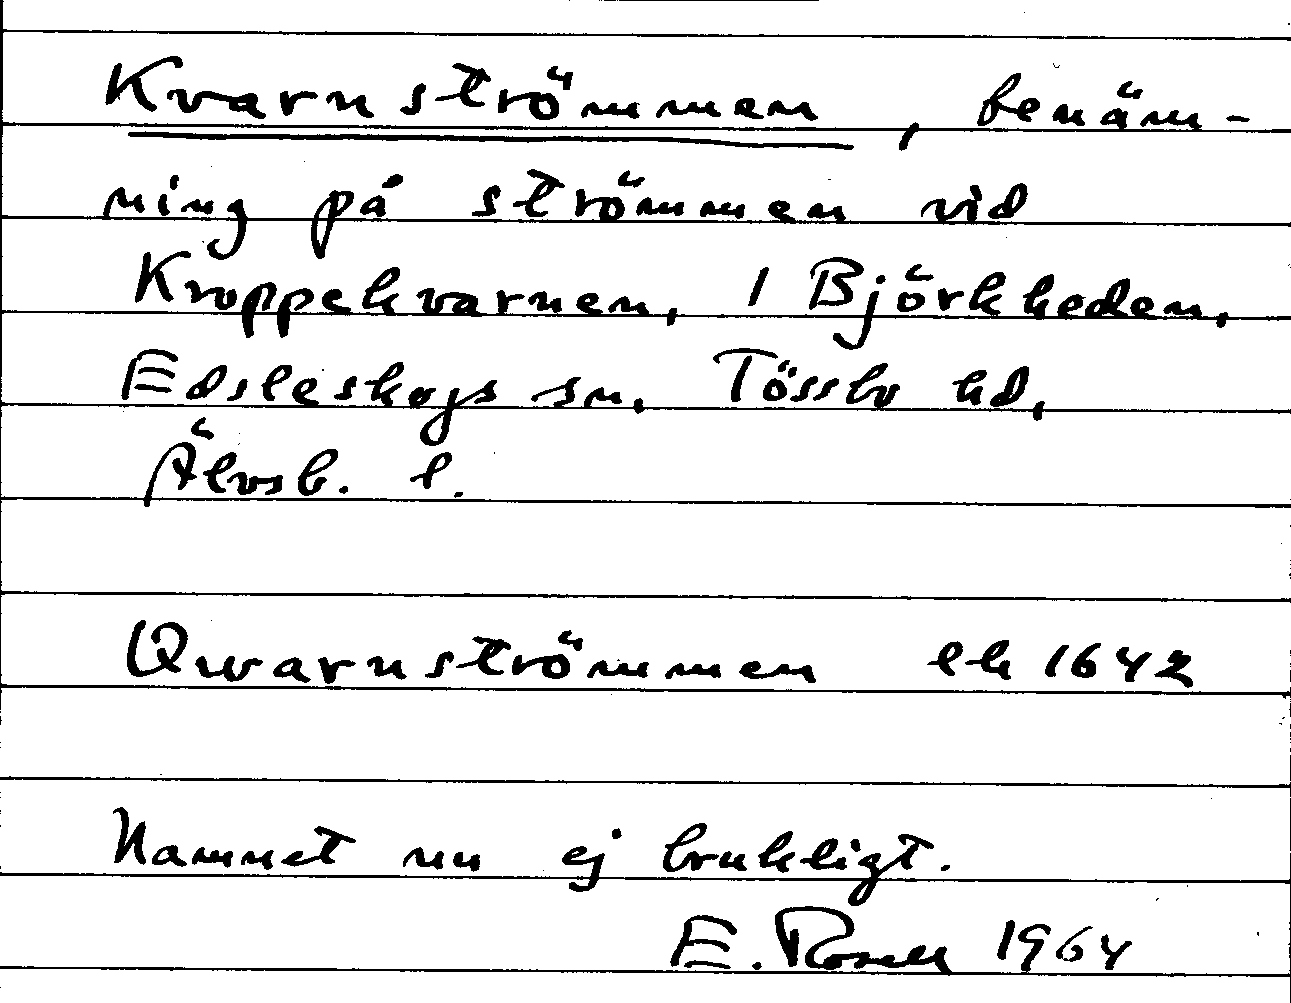 Kvarnströmmen, benäm-
ning på strömmen vid
Kroppekvarnen, 1 Björkheden,
Edsleskogs sn, Tössbo hd,
Älvsb. l.
Qwarnströmmen lk 1642
Namnet nu ej brukligt.
E. Rosell 1964